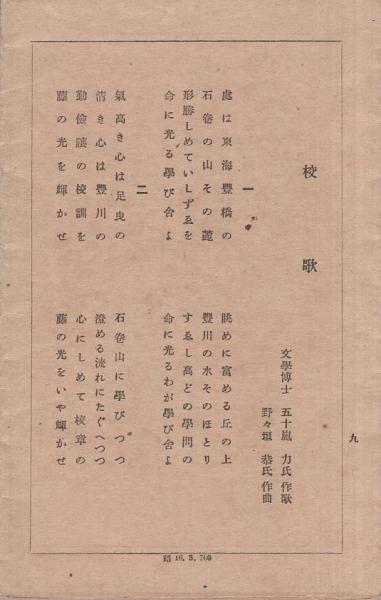 校歌
文學博士 五十嵐 力氏作歌
野々垣 恭氏作曲
一
處は東海豐橋の
石卷の山その麓
形勝しめていしずゑを
命に光る學び舍よ
眺めに富める丘の上
豐川の水そのほとり
すゑし高どの學問の
命に光るわが學び舍よ
二
氣高き心は足曳の
淸き心は豐川の
勤儉讓の校訓を
藤の光を輝かせ
石卷山に學びつつ
澄める流れにたぐへつつ
心にしめて校章の
藤の光をいや輝かせ
九
昭 16. 3. 700